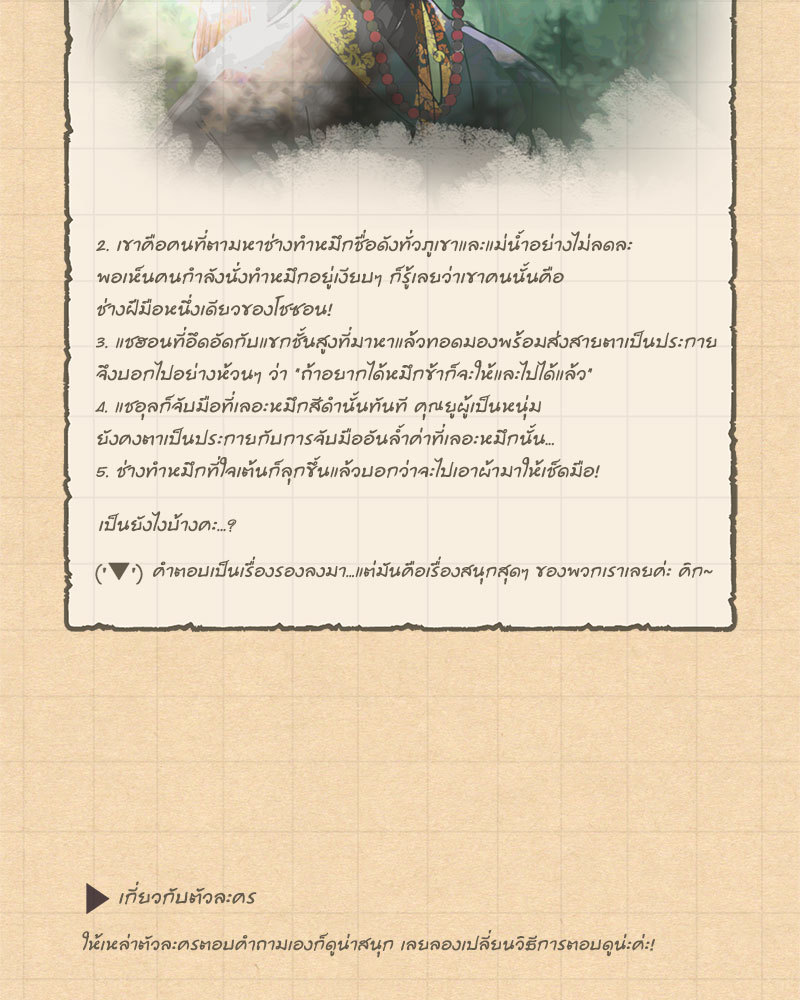 2. เขาคือคนที่ตามหาช่างทำหมึกชื่อดังทั่วภูเขาและแม่น้ำอย่างไม่ลดละ
พอเห็นคนกำลังนั่งทำหมึกอยู่เงียบๆ ก็รู้เลยว่าเขาคนนั้นคือ
ช่างฝีมือหนึ่งเดียวของโชซอน!
3. แชฮอนที่อึดอัดกับแขกชั้นสูงที่มาหาแล้วทอดมองพร้อมส่งสายตาเป็นประกาย
จึงบอกไปอย่างห้วนๆ ว่า "ถ้าอยากได้หมึกข้าก็จะให้และไปได้แล้ว"
4. แชอุลก็จับมือที่เลอะหมึกสีดำนั้นทันที คุณยูผู้เป็นหนุ่ม
ยังคงตาเป็นประกายกับการจับมืออันล้ำค่าที่เลอะหมึกนั้น...
5. ช่างทำหมึกที่ใจเต้นก็ลุกขึ้นแล้วบอกว่าจะไปเอาผ้ามาให้เช็ดมือ!
เป็นยังไงบ้างคะ...?
('▼') คำตอบเป็นเรื่องรองลงมา...แต่มันคือเรื่องสนุกสุดๆ ของพวกเราเลยค่ะ คิก~
▶ เกี่ยวกับตัวละคร
ให้เหล่าตัวละครตอบคำถามเองก็ดูน่าสนุก เลยลองเปลี่ยนวิธีการตอบดูน่ะค่ะ!